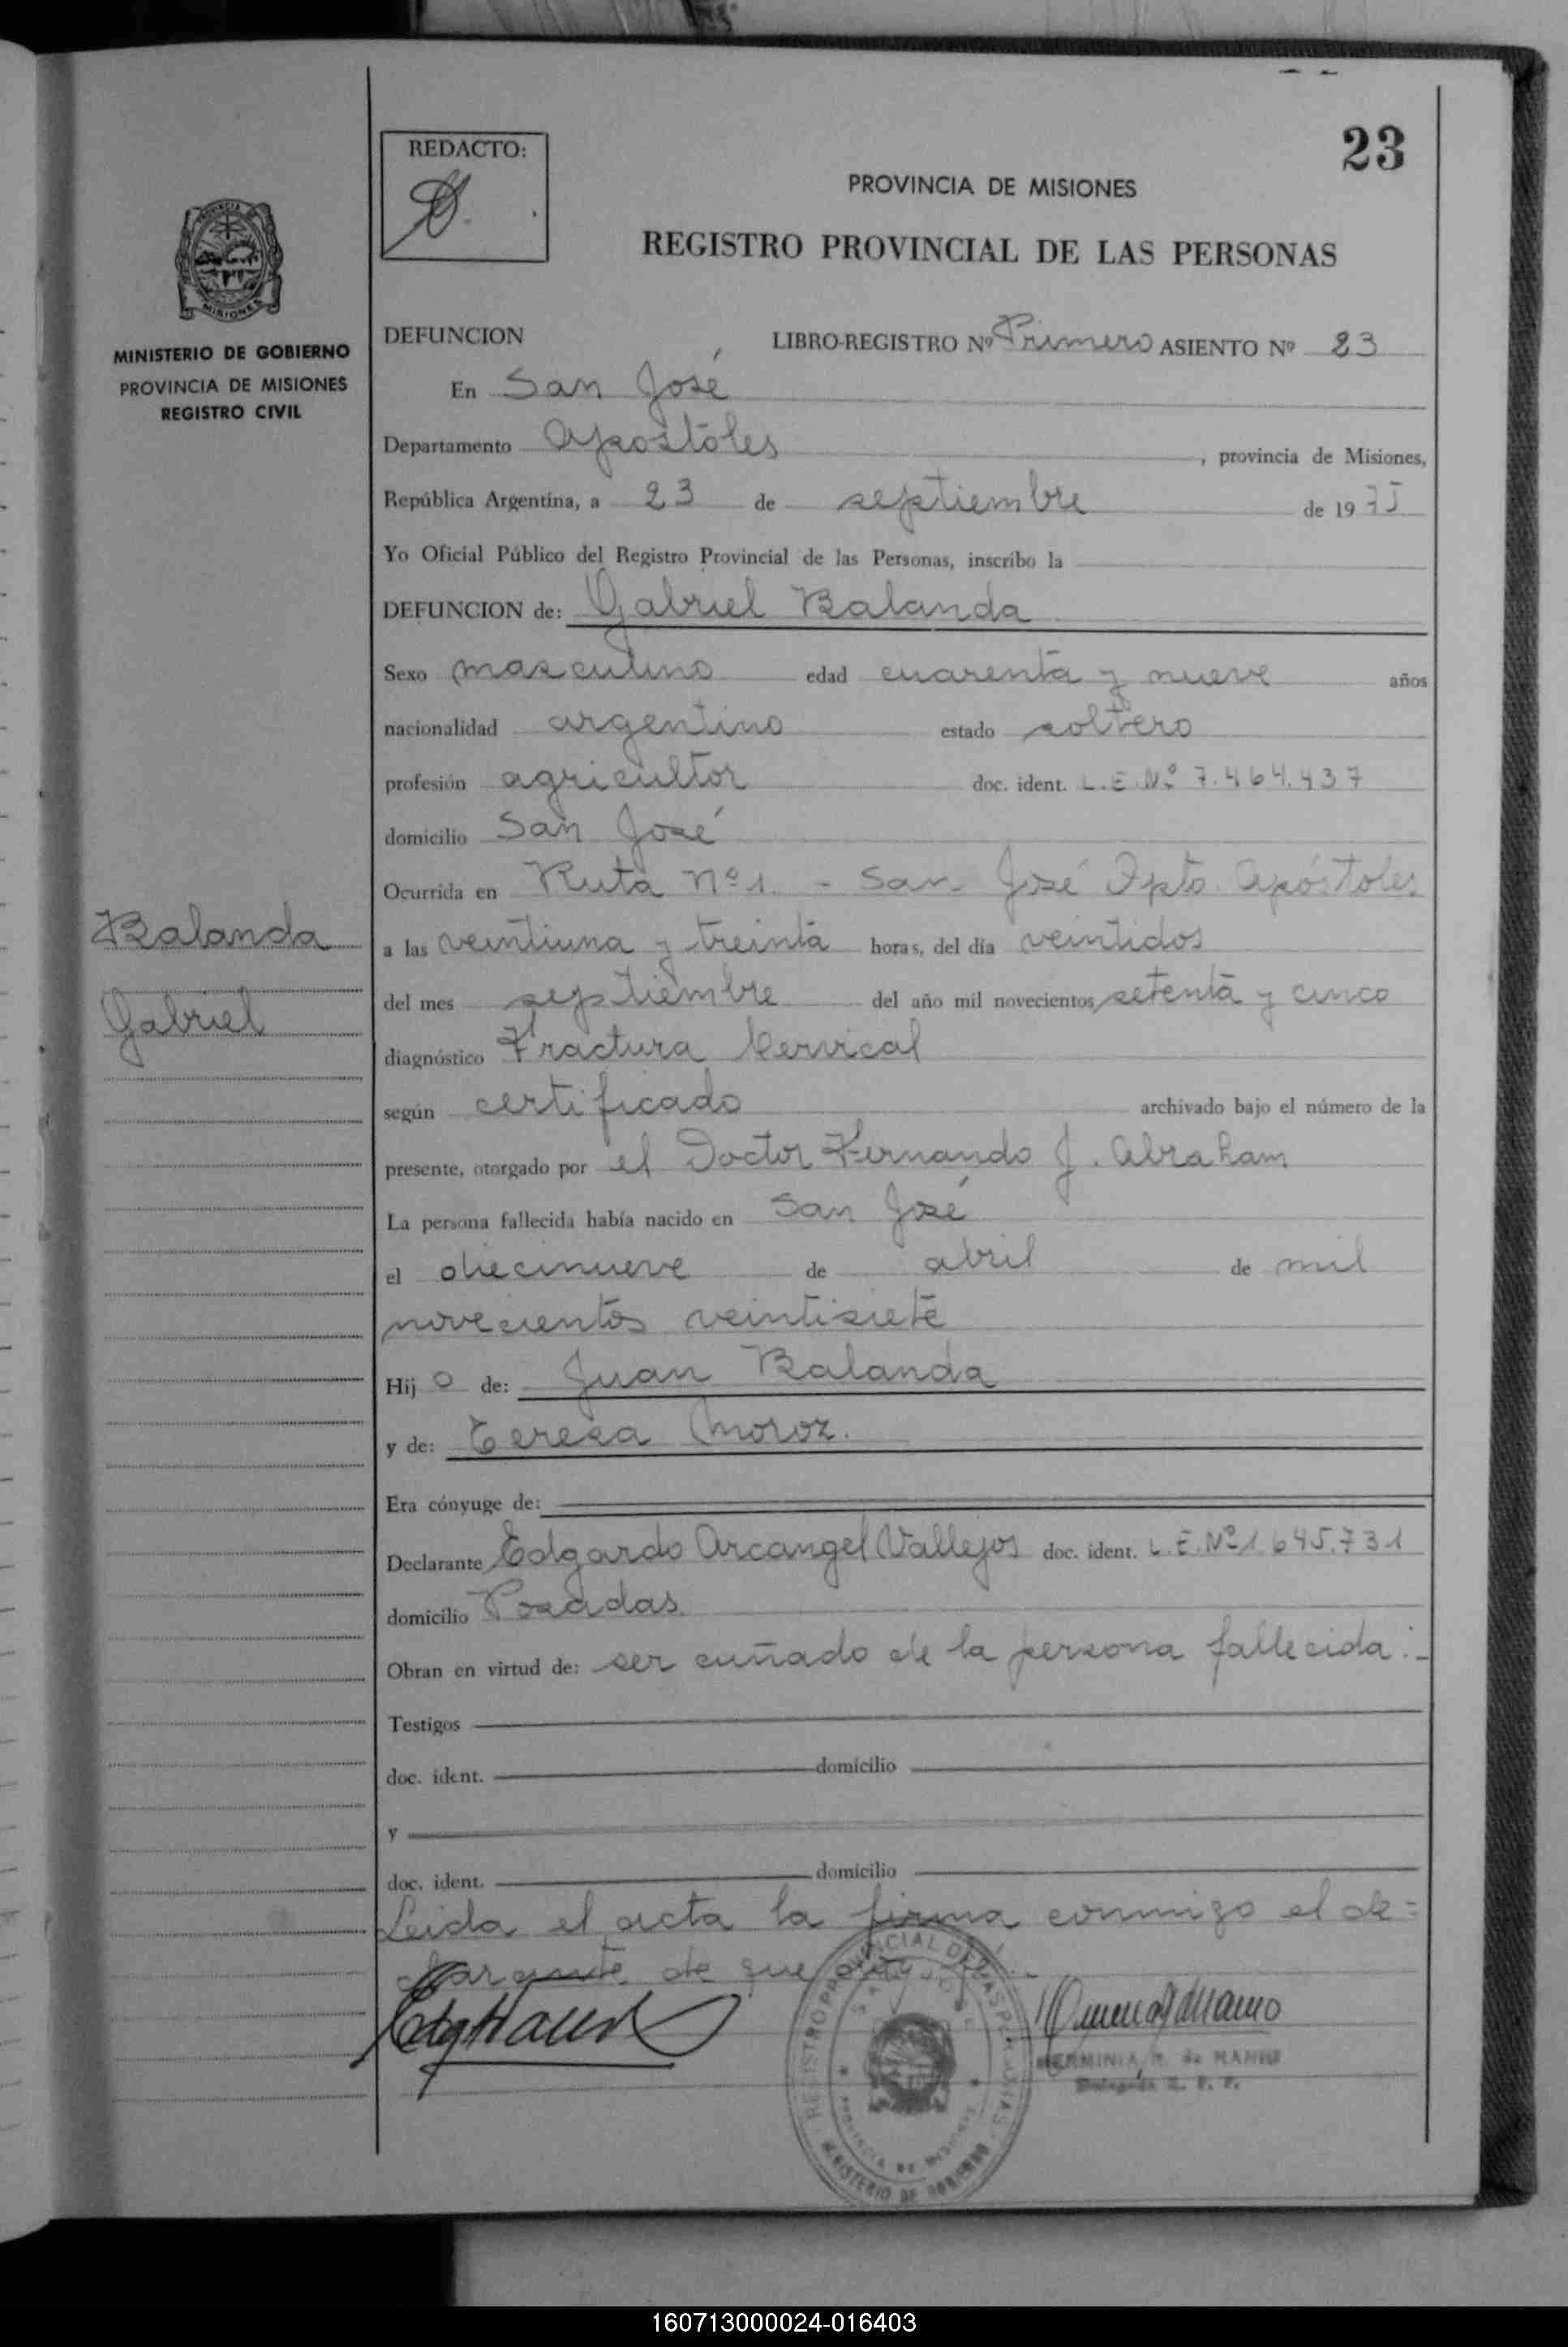 23
REDACTO:
PROVINCIA DE MISIONES
REGISTRO PROVINCIAL DE LAS PERSONAS
MISIONES
MINISTERIO DE GOBIERNO
PROVINCIA DE MISIONES
REGISTRO CIVIL
DEFUNCION LIBRO-REGISTRO Nº Primero ASIENTO Nº 23
En San José
Departamento Apóstoles, provincia de Misiones,
República Argentina, a 23 de septiembre de 1975
Yo Oficial Público del Registro Provincial de las Personas, inscribo la
DEFUNCION de: Gabriel Balanda
Sexo masculino edad cuarenta y nueve años
nacionalidad argentino estado soltero
profesión agricultor doc. ident. L.E.Nº 7.464.437
domicilio San José
Ocurrida en Ruta nº 1. - San José Dpto. Apóstoles
Balanda
Gabriel
a las veintiuna y treinta horas, del día veintidos
del mes septiembre del año mil novecientos setenta y cinco
diagnóstico Fractura Cervical
según certificado archivado bajo el número de la
presente, otorgado por el Doctor Fernando J. Abraham
La persona fallecida había nacido en San José
el diecinueve de abril de mil
novecientos veintisiete
Hijo de: Juan Balanda
y de: Teresa Moroz.
Era cónyuge de:
Declarante Edgardo Arcangel Vallejos doc. ident. L.E.Nº 1.645.731
domicilio Posadas
Obran en virtud de: ser cuñado de la persona fallecida.-
Testigos
doc. ident. domicilio
y
doc. ident. domicilio
Leida el acta la firma conmigo el de=
clarante de que doy
REGISTRO PROVINCIAL DE LAS PERSONAS
PROVINCIA DE MISIONES
MINISTERIO DE GOBIERNO
HERMINIA de
160713000024-016403